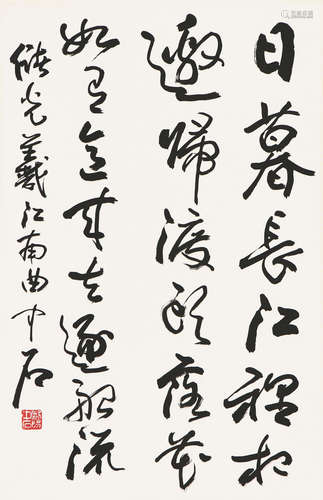 日暮長江裡相
邀歸渡頭落花
如有意來去逐船流
儲光羲江南曲中石